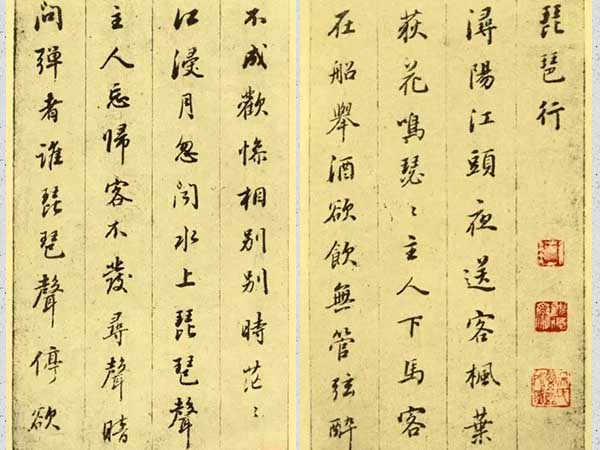 琵琶行
潯陽江頭夜送客楓葉
荻花鳴瑟〻主人下馬客
在船舉酒欲飲無管弦醉
不成歡慘相別別時茫〻
江浸月忽聞水上琵琶聲
主人忘歸客不發尋聲暗
問彈者誰琵琶聲停欲